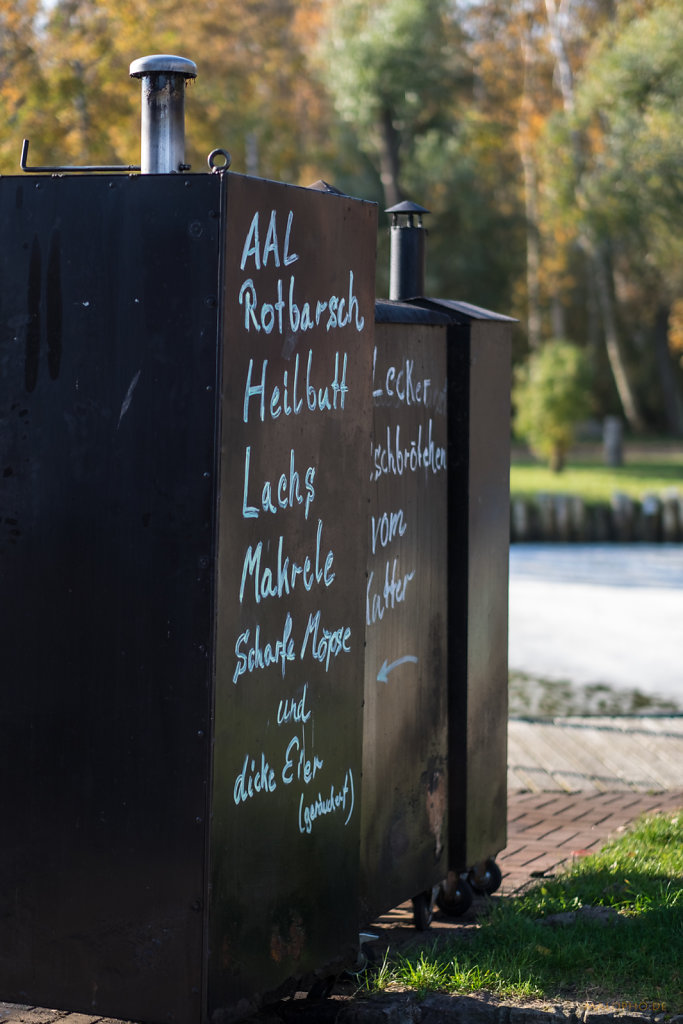 AAL
Rotbarsch
Heilbutt
Lachs
Makrele
Scharfe Möpse
und
dicke Eier
(geräuchert)
Lecker
schbrötchen
vom
Kutter